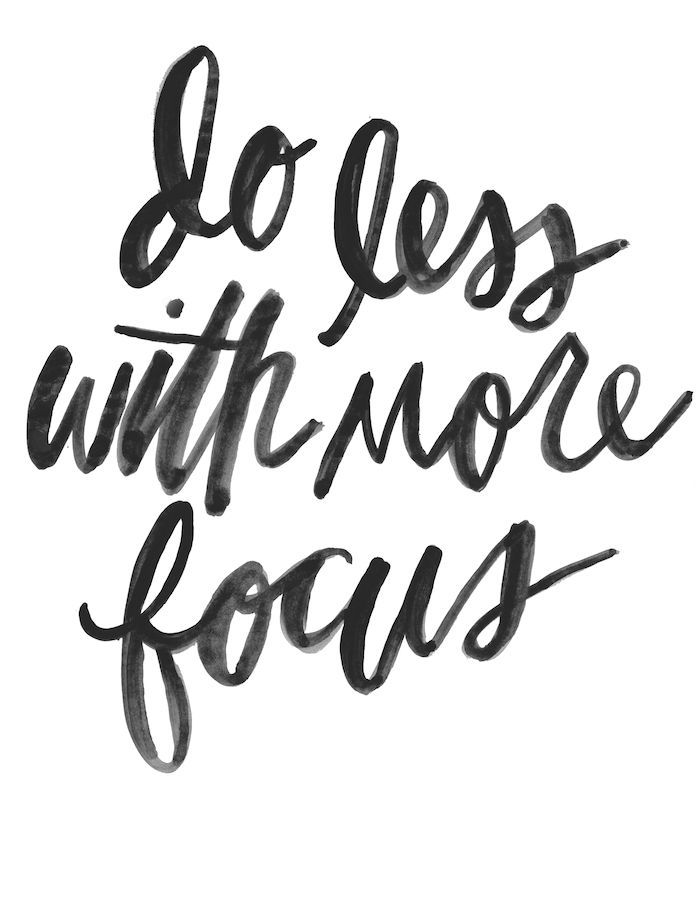 do less
with more
focus